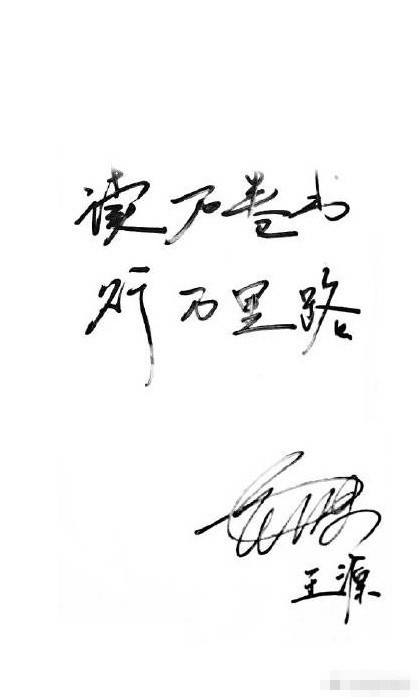 读万卷书
行万里路
王源